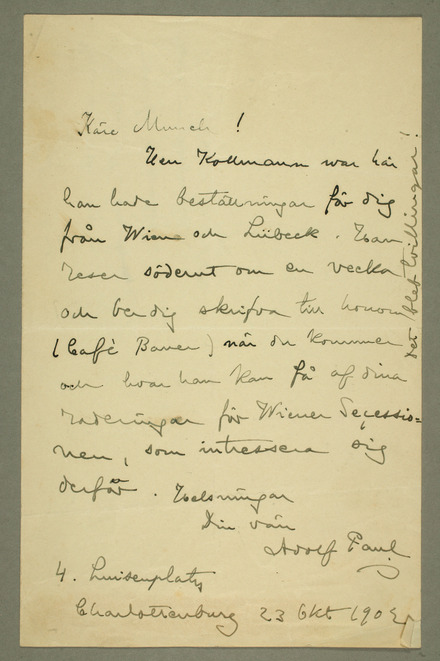 Käre Munch!
Herr Kollmann war här
han hade beställningar för dig
från Wien och Lübeck. Han
reser söderut om en vecka
och ber dig skrifva till honom
(Café Bauer) när du kommer
och hvar han kan få af dina
raderingar för Wiener Secessio=
nen, som intressera sig
derför. Helsningar
Din vän
Adolf Paul
4. Luisenplatz
Charlottenburg 23 Okt 190
det blef tvillingar!